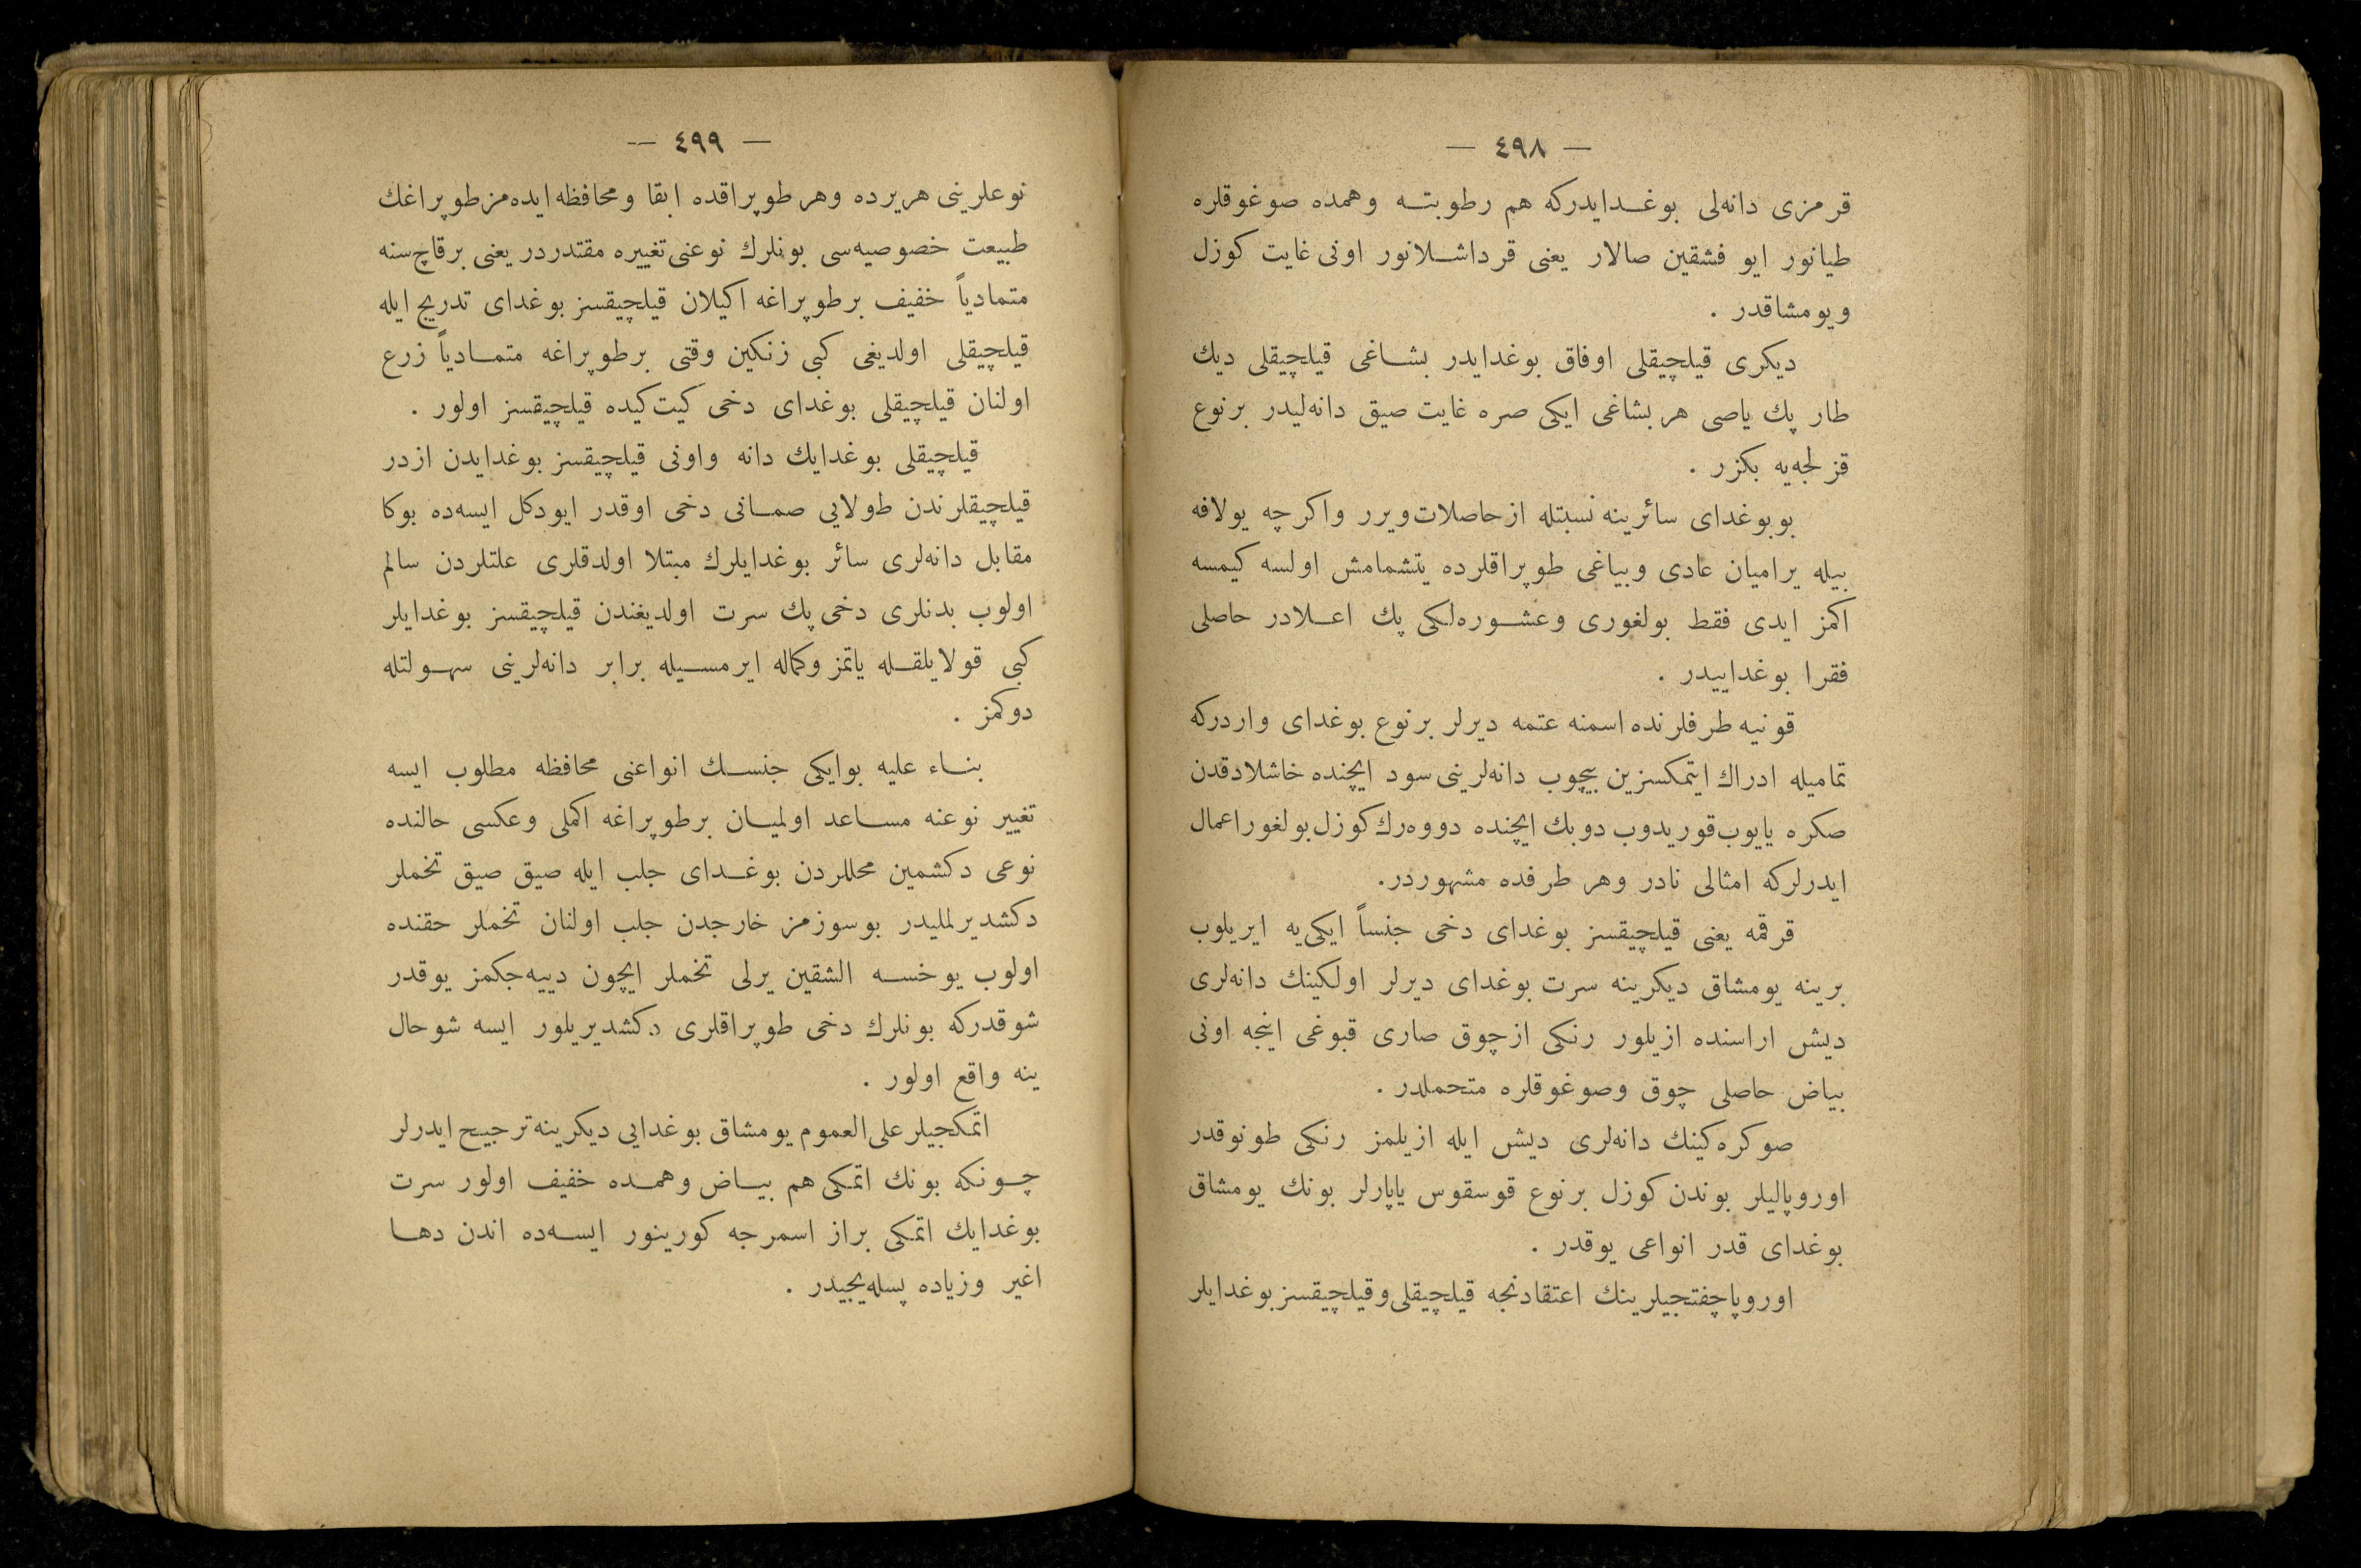 — ٤٩٨ —
قرمزی دانه‌لی بوغدایدرکه هم رطوبته وهمده صوغوقلره
طیانور ایو فشقین صالار یعنی قرداشلانور اونی غایت کوزل
ویومشاقدر .
دیکری قیلچیقلی اوفاق بوغدایدر بشاغی قیلچیقلی دیك
طار پك یاصی هر بشاغی ایکی صره غایت صیق دانه‌لیدر برنوع
قزلجه‌یه بکزر .
بوبوغدای سائرینه نسبتله ازحاصلات ویرر واکرچه یولافه
بیله یرامیان عادی وبیاغی طوپراقلرده یتشمامش اولسه کیمسه
اکمز ایدی فقط بولغوری وعشوره‌لکی پك اعلادر حاصلی
فقرا بوغداییدر .
قونیه طرفلرنده اسمنه عتمه دیرلر برنوع بوغدای واردرکه
تمامیله ادراك ایتمکسزین بیچوب دانه‌لرینی سود ایچنده خاشلادقدن
صکره یایوب قوریدوب دوبك ایچنده دووه‌رك کوزل بولغور اعمال
ایدرلرکه امثالی نادر وهر طرفده مشهوردر.
قرقمه یعنی قیلچیقسز بوغدای دخی جنساً ایکی‌یه ایریلوب
برینه یومشاق دیکرینه سرت بوغدای دیرلر اولکینك دانه‌لری
دیش اراسنده ازیلور رنکی ازچوق صاری قبوغی اینجه اونی
بیاض حاصلی چوق وصوغوقلره متحملدر .
صوکره‌کینك دانه‌لری دیش ایله ازیلمز رنکی طونوقدر
اوروپالیلر بوندن کوزل برنوع قوسقوس یاپارلر بونك یومشاق
بوغدای قدر انواعی یوقدر .
اوروپا چفتجیلرینك اعتقادنجه قیلچیقلی وقیلچیقسز بوغدایلر
— ٤٩٩ —
نوعلرینی هریرده وهر طوپراقده ابقا ومحافظه ایده‌مز طوپراغك
طبیعت خصوصیه‌سی بونلرك نوعنی تغییره مقتدردر یعنی برقاچ سنه
متمادیاً خفیف برطوپراغه اکیلان قیلچیقسز بوغدای تدریج ایله
قیلچیقلی اولدیغی کبی زنکین وقتی برطوپراغه متمادیاً زرع
اولنان قیلچیقلی بوغدای دخی کیت کیده قیلچیقسز اولور .
قیلچیقلی بوغدایك دانه واونی قیلچیقسز بوغدایدن ازدر
قیلچیقلرندن طولایی صمانی دخی اوقدر ایودکل ایسه‌ده بوکا
مقابل دانه‌لری سائر بوغدایلرك مبتلا اولدقلری علتلردن سالم
اولوب بدنلری دخی پك سرت اولدیغندن قیلچیقسز بوغدایلر
کبی قولایلقله یاتمز وکماله ایرمسیله برابر دانه‌لرینی سهولتله
دوکمز .
بناء علیه بوایکی جنسك انواعنی محافظه مطلوب ایسه
تغییر نوعنه مساعد اولمیان برطوپراغه اکملی وعکسی حالنده
نوعی دکشمین محللردن بوغدای جلب ایله صیق صیق تخملر
دکشدیرلملیدر بوسوزمز خارجدن جلب اولنان تخملر حقنده
اولوب یوخسه الشقین یرلی تخملر ایچون دییه‌جکمز یوقدر
شوقدرکه بونلرك دخی طوپراقلری دکشدیریلور ایسه شوحال
ینه واقع اولور .
اتمکجیلر علی‌العموم یومشاق بوغدایی دیکرینه ترجیح ایدرلر
چونکه بونك اتمکی هم بیاض وهمده خفیف اولور سرت
بوغدایك اتمکی براز اسمرجه کورینور ایسه‌ده اندن دها
اغیر وزیاده پسله‌ییجیدر .